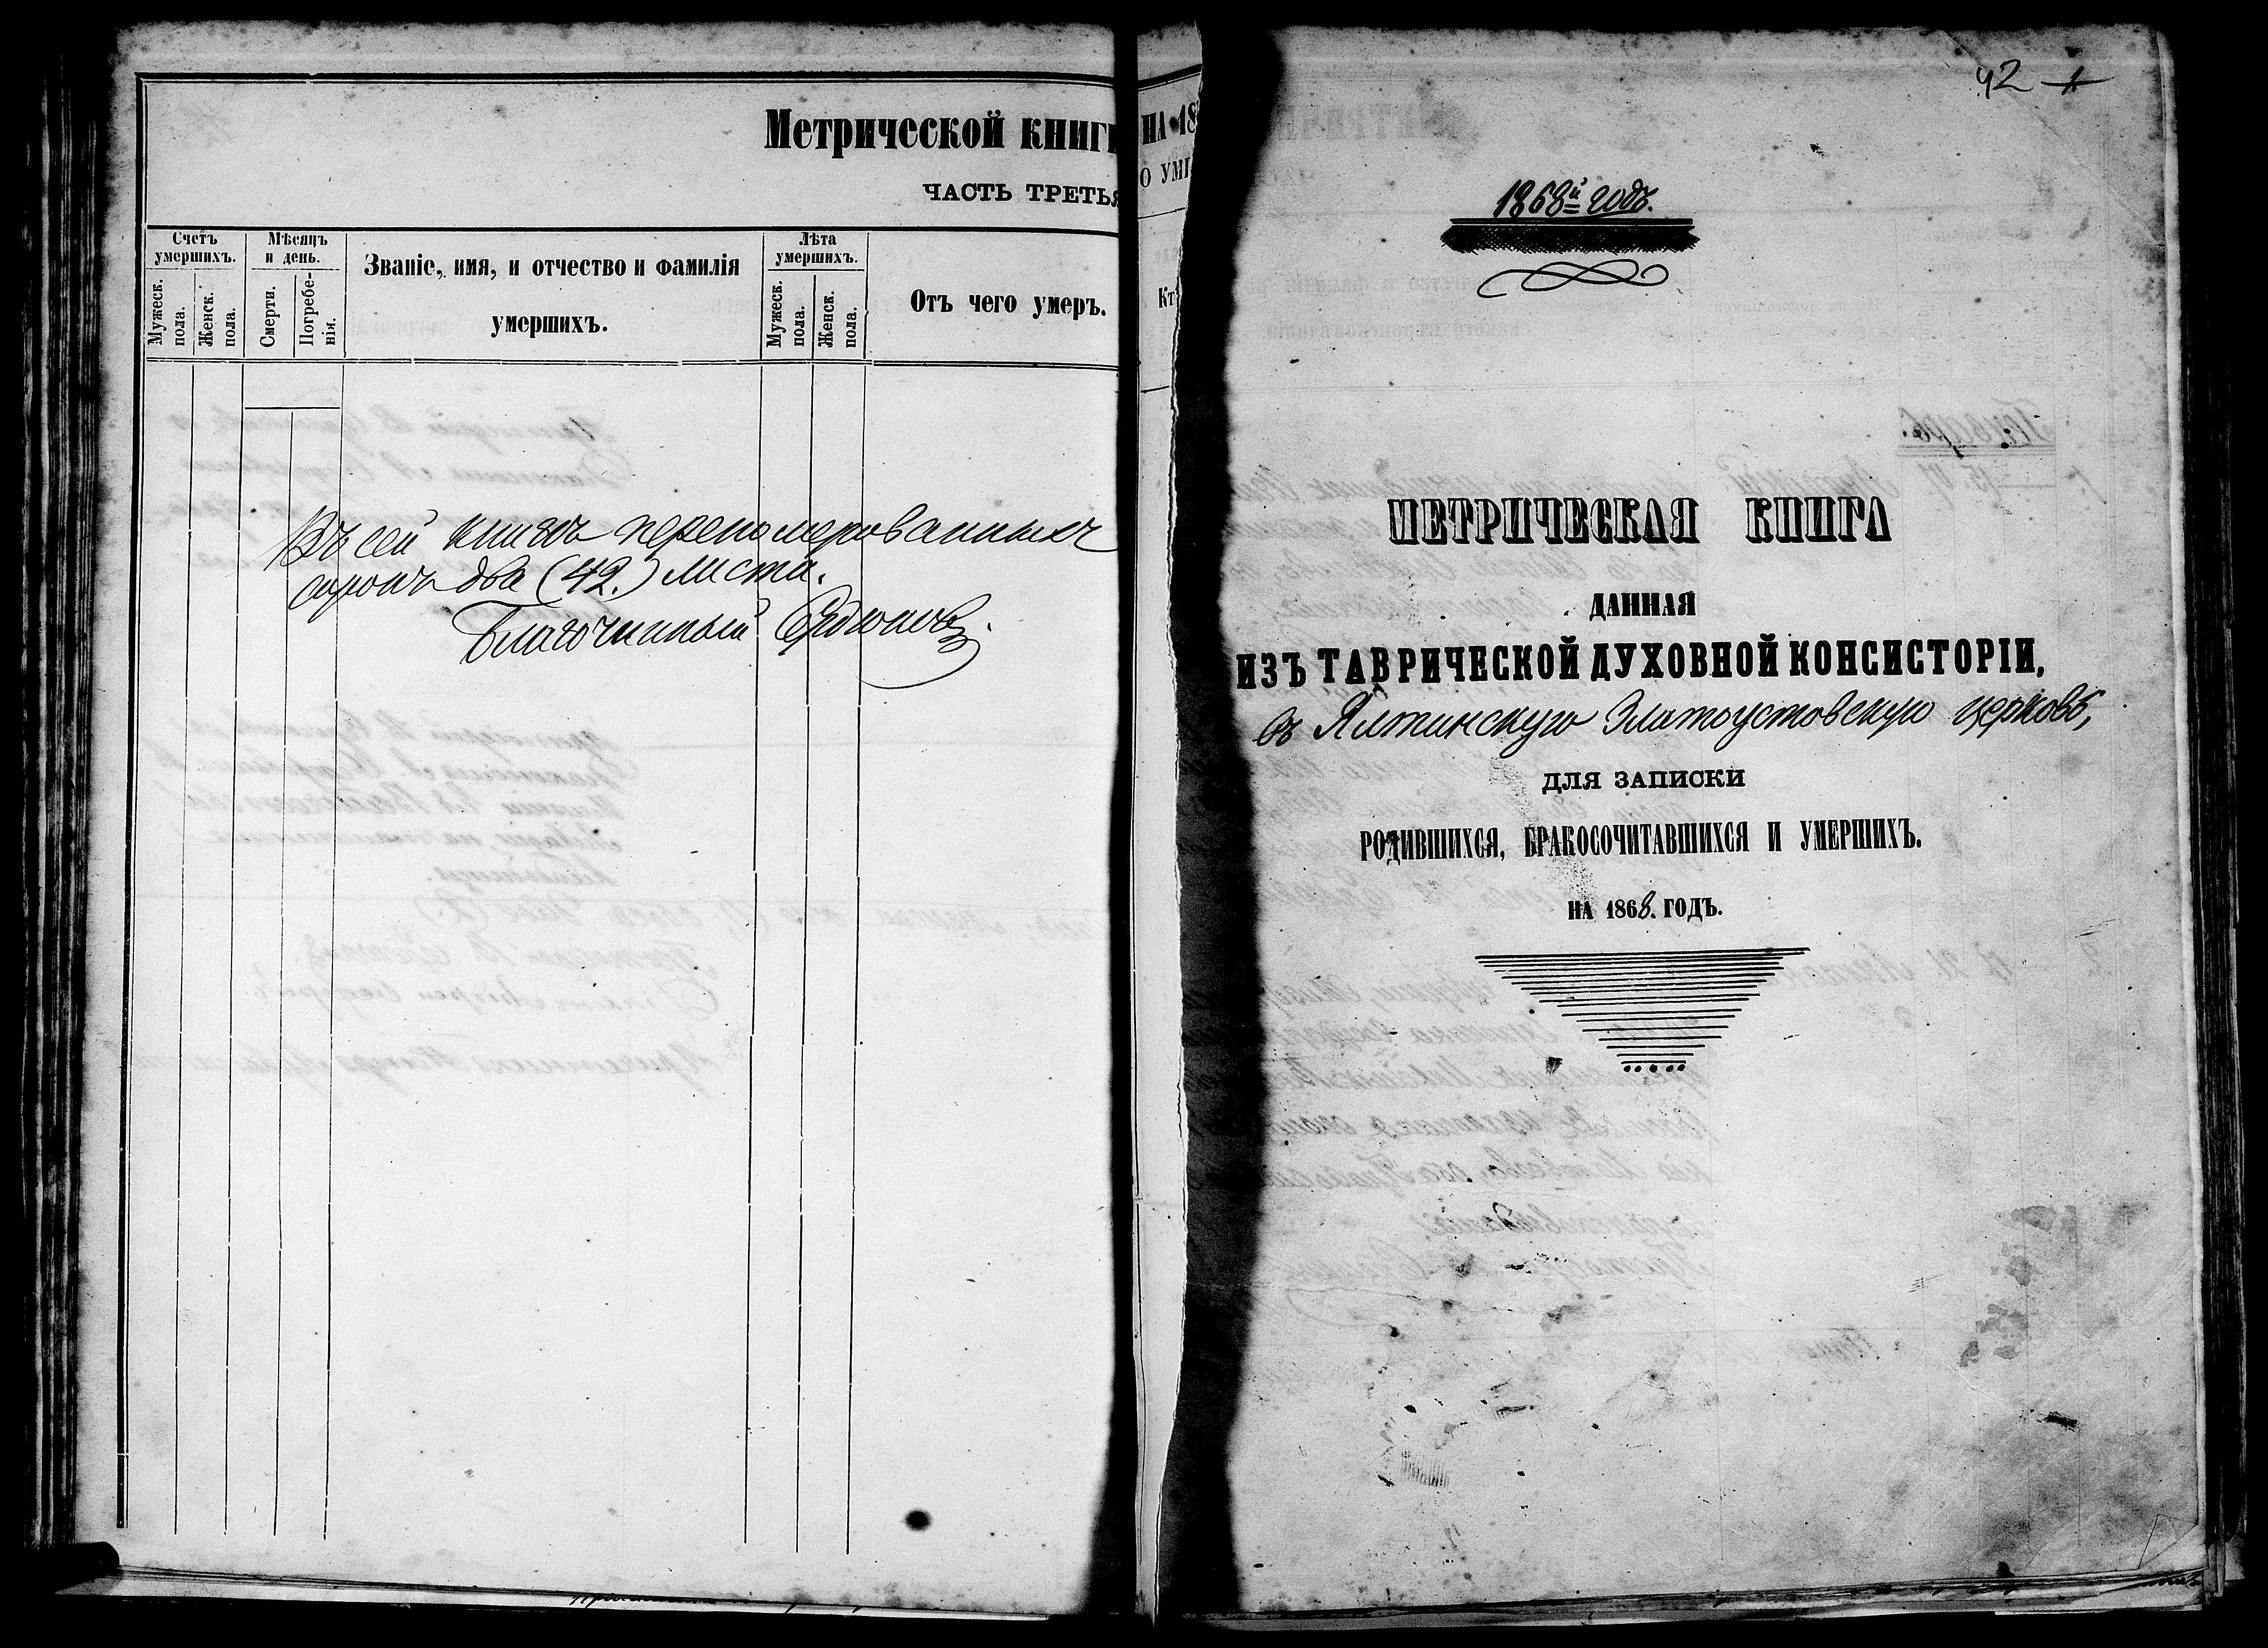 Метрической книги
ЧАСТЬ ТРЕТЬЯ
Счетъ умершихъ.
Мужеск. пола.
Женск. пола.
Мѣсяцъ и день.
Смерти.
Погребенія.
Званіе, имя, и отчество и фамилія
умершихъ.
Лѣта умершихъ.
Мужеск. пола.
Женск. пола.
Отъ чего умеръ.
Въ сей книгѣ перепомерованныхъ
сорокъ два (42.) листа.
Благочинный
НА 18
О УМ
Кт
42 1
1868й годъ.
МЕТРИЧЕСКАЯ КНИГА
ДАННАЯ
ИЗЪ ТАВРИЧЕСКОЙ ДУХОВНОЙ КОНСИСТОРІИ,
въ Ялтинскую Златоустовскую церковь,
ДЛЯ ЗАПИСКИ
РОДИВШИХСЯ, БРАКОСОЧИТАВШИХСЯ И УМЕРШИХЪ.
НА 1868. ГОДЪ.